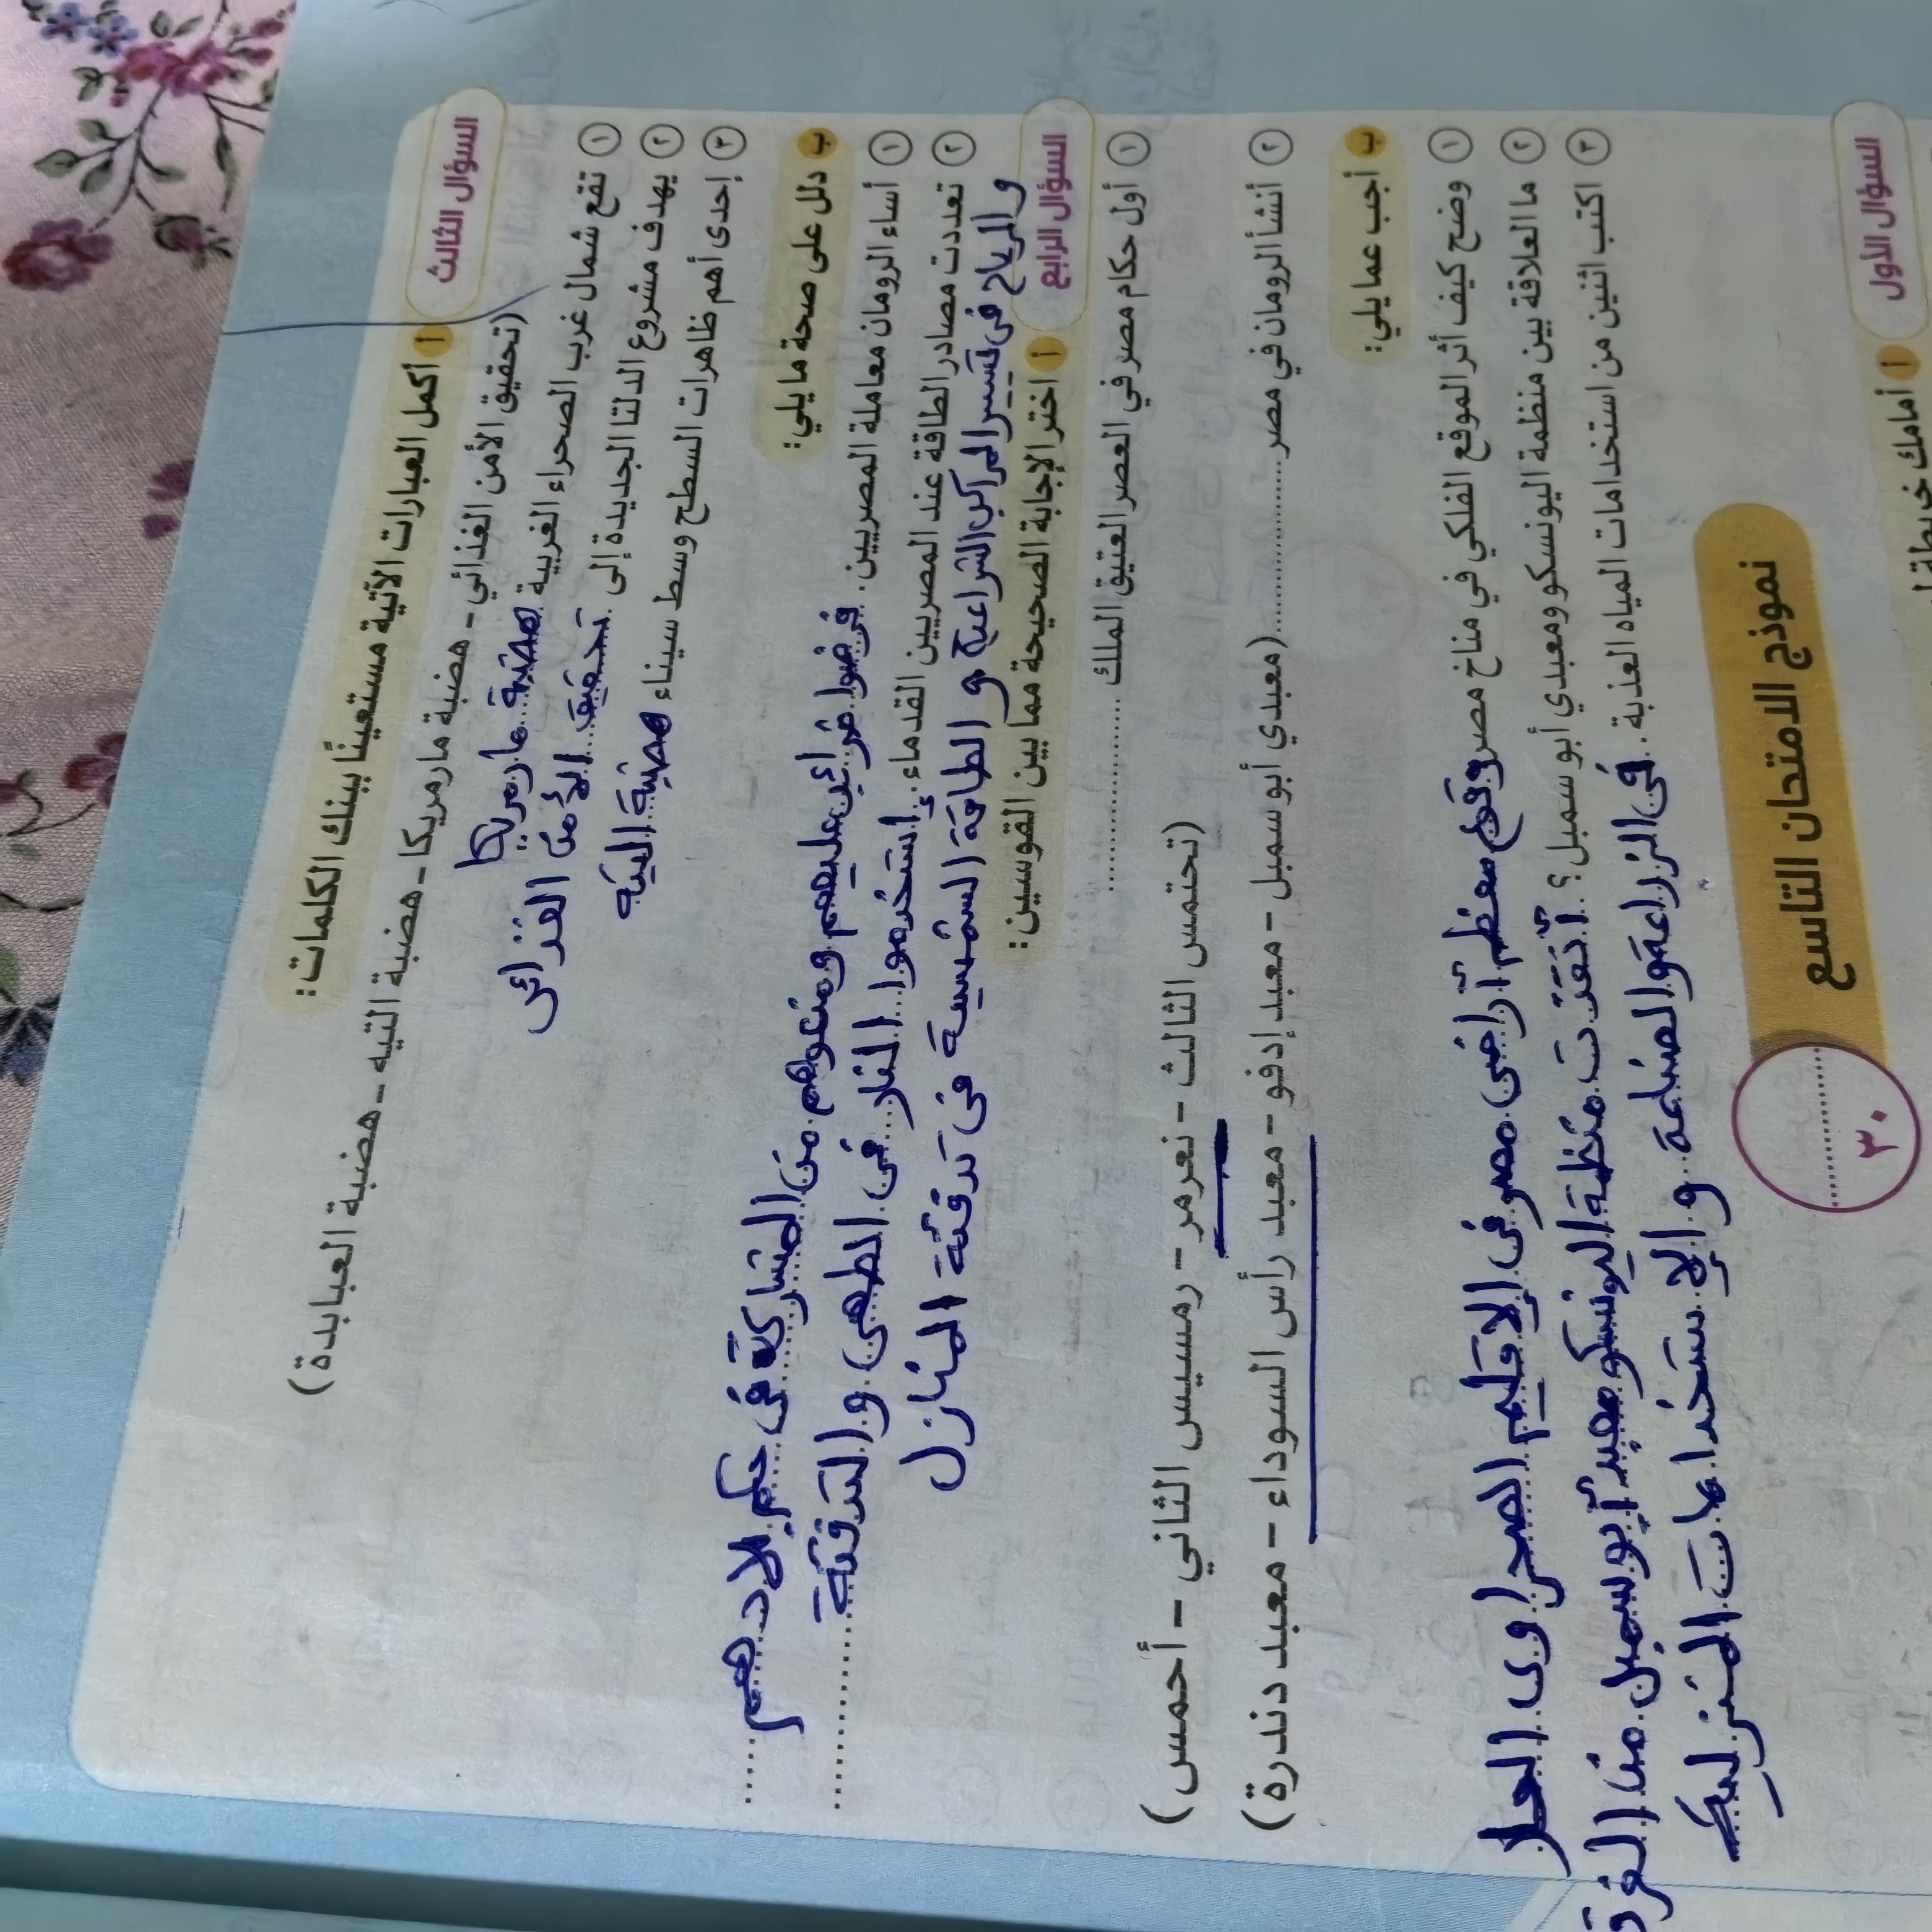 السؤال الثالث
أ أكمل العبارات الآتية مستعينًا ببنك الكلمات:
(تحقيق الأمن الغذائي - هضبة مارمريكا - هضبة التيه - هضبة العبابدة)
١ تقع شمال غرب الصحراء الغربية هضبة مارمريكا
٢ يهدف مشروع الدلتا الجديدة إلى تحقيق الأمن الغذائى
٣ إحدى أهم ظاهرات السطح وسط سيناء هضبة التية
ب دلل على صحة ما يلي:
١ أساء الرومان معاملة المصريين. فرضوا ضرائب عليهم ومنعوهم من المشاركة فى حكم بلادهم
٢ تعددت مصادر الطاقة عند المصريين القدماء. إستخدموا النار فى الطهى والتدفئة
والرياح فى تسيير المراكب الشراعية و الطاقة الشمسية فى تدفئة المنازل
السؤال الرابع
أ اختر الإجابة الصحيحة مما بين القوسين:
١ أول حكام مصر في العصر العتيق الملك ..............
(تحتمس الثالث - نعرمر - رمسيس الثاني - أحمس)
٢ أنشأ الرومان في مصر ..............
(معبدي أبو سمبل - معبد إدفو - معبد رأس السوداء - معبد دندرة)
ب أجب عما يلي:
١ وضح كيف أثر الموقع الفلكي في مناخ مصر وقوع معظم أراضى مصر فى الإقليم الصحراوى الحار
٢ ما العلاقة بين منظمة اليونسكو ومعبدي أبو سمبل؟ أنقذت منظمة اليونسكو معبد أبو سمبل من الغرق
٣ اكتب اثنين من استخدامات المياه العذبة. فى الزراعة والصناعة و الإستخدامات المنزلية
نموذج الامتحان التاسع
٣٠
السؤال الأول
أ أمامك خريطة